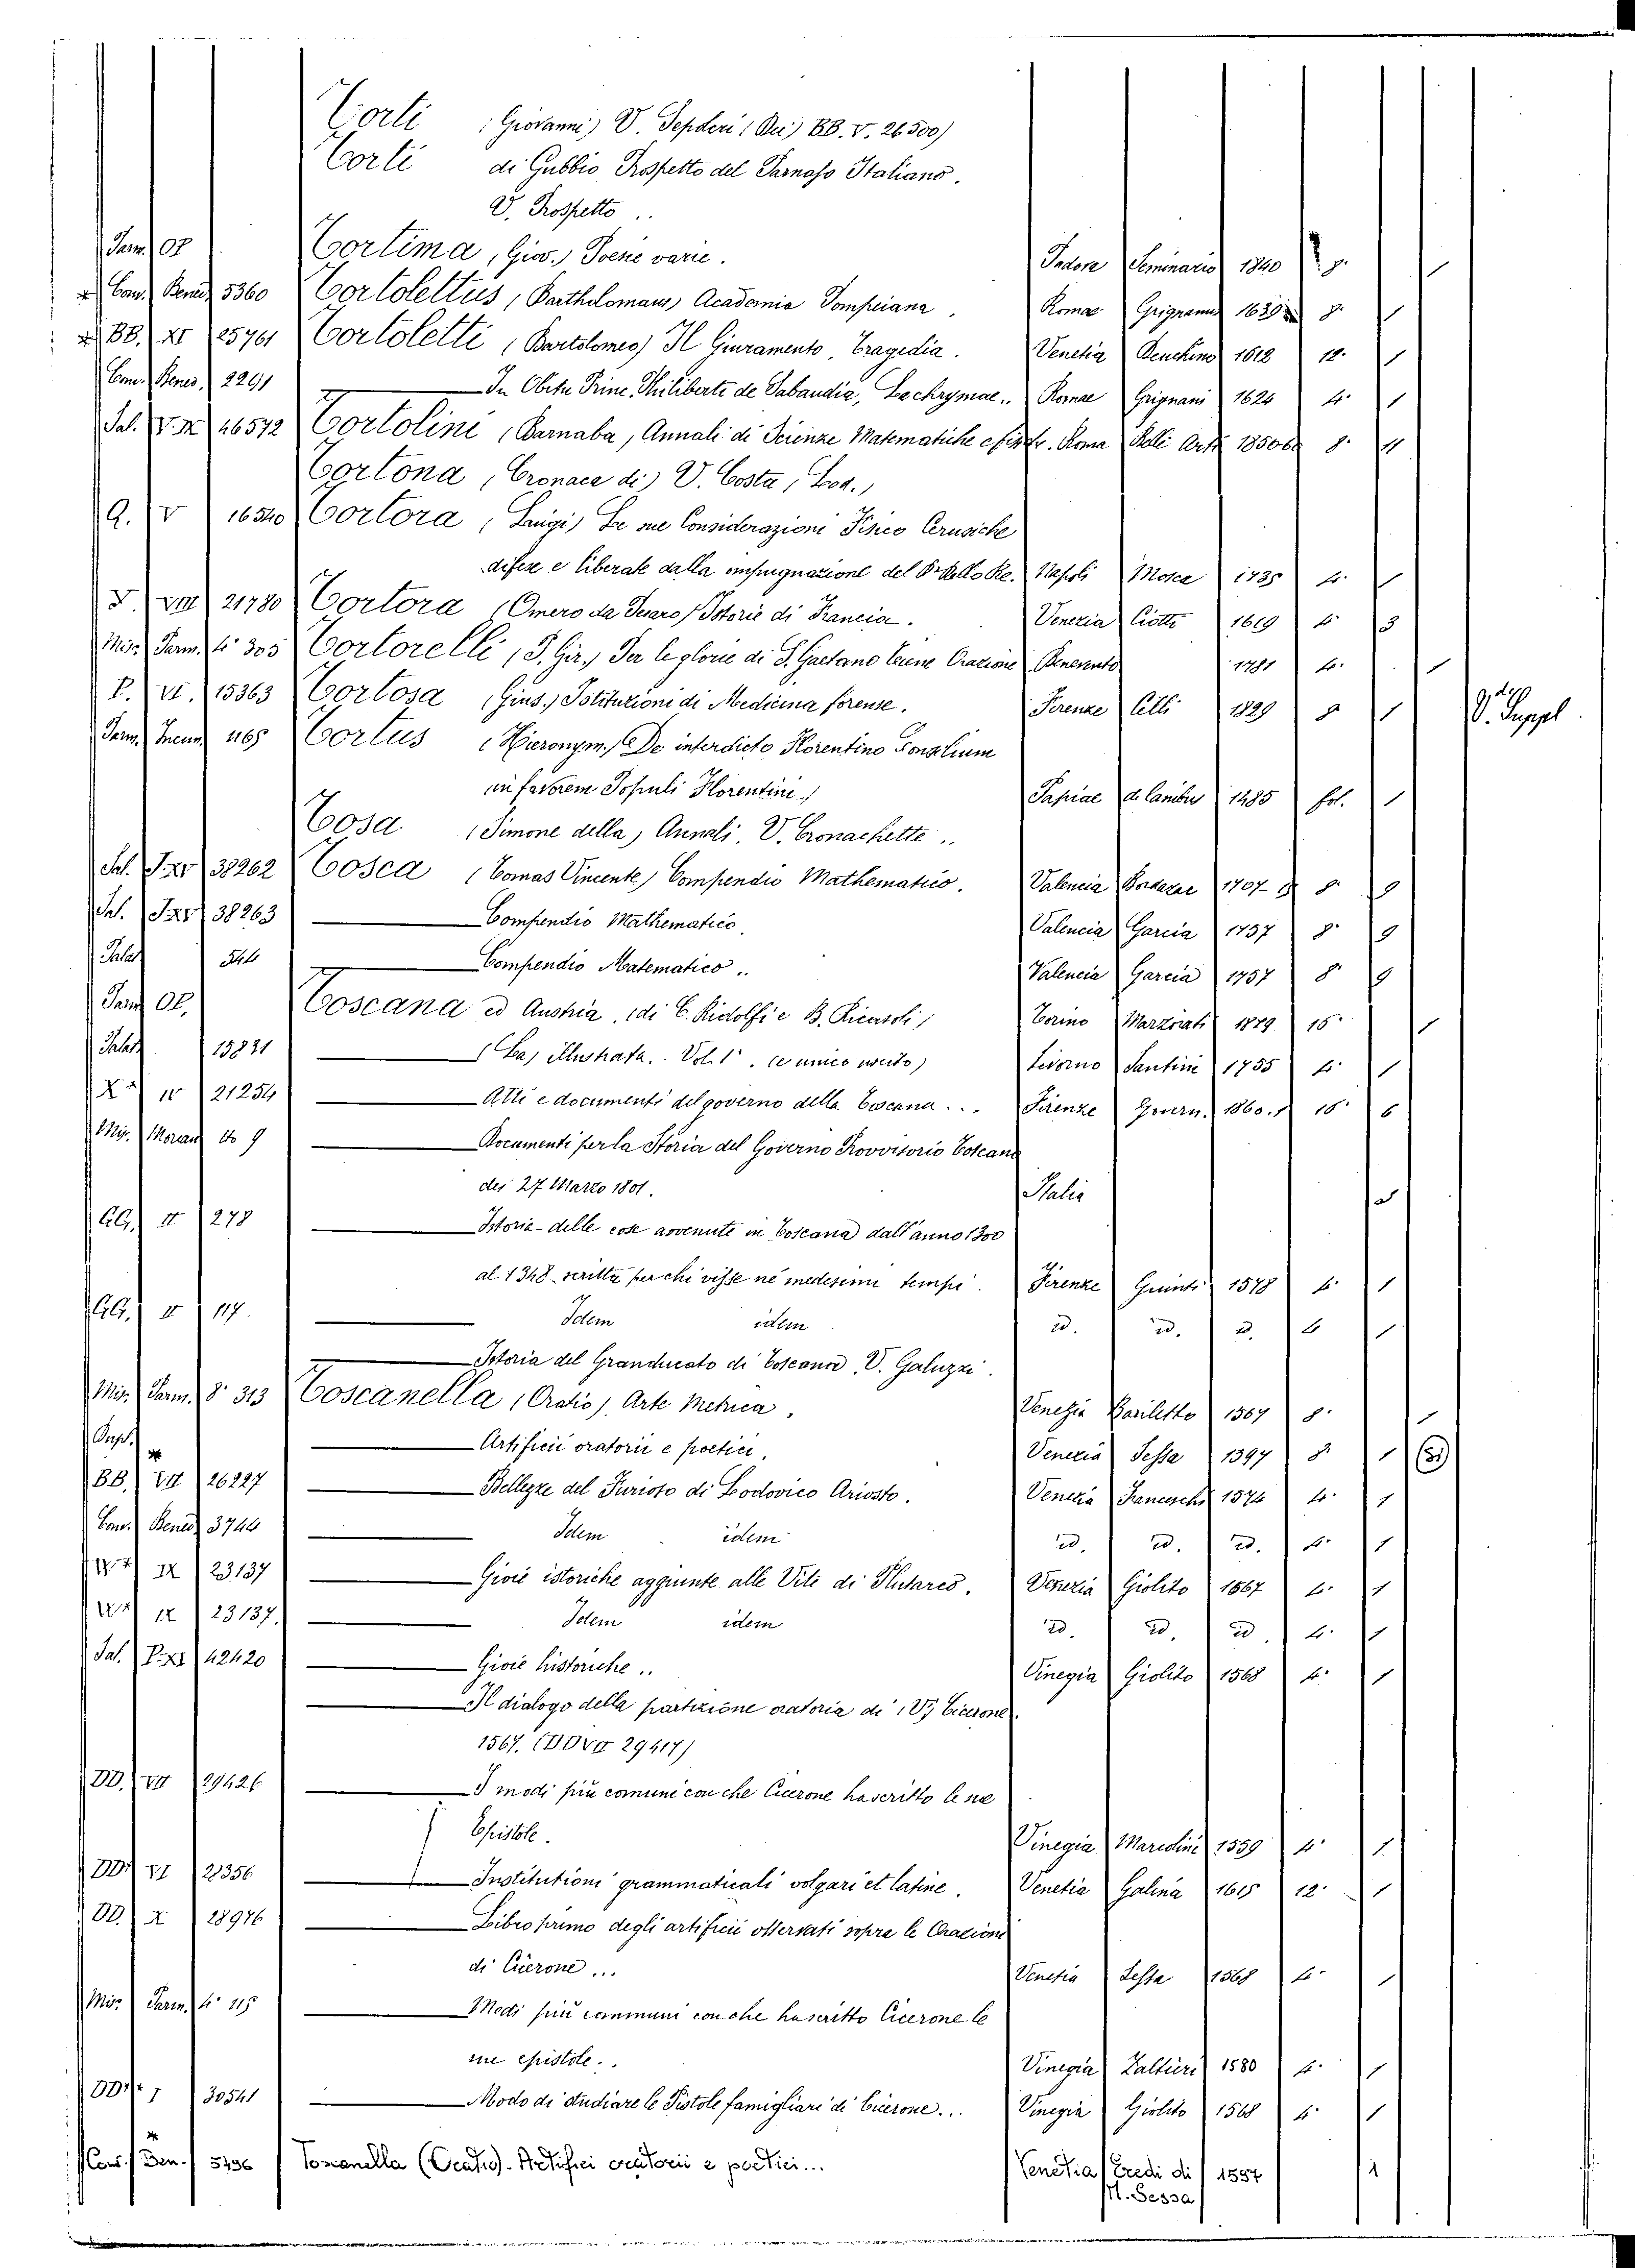 Torti (Giovanni) V. Sepolcri (Dei) BB. V. 26500)
Torti di Gubbio Prospetto del Parnaso Italiano.
V. Prospetto ..
Parm. OP Tortima, Giov.) Poesie varie. Padova Seminario 1840 8.
Com. Bened. 5360 Tortolettus, Bartholomaus) Academia Pompeiana. Romae Grignani 1639 8. 1
BB. XI 25761 Tortoletti (Bartolomeo) Il Giuramento, Tragedia. Venetia Deuchino 1612 12. 1
Com. Bened. 2291 — In Obitu Princ. Philiberti de Sabaudia, Lachrymae.. Romae Grignani 1624 4. 1
Sal. 46572 Tortolini (Barnaba, Annali di Scienze Matematiche e fis. Roma Belle Arti 1850 8.
Tortona (Cronaca di) V. Costa, Lod.)
Q. V 16540 Tortora (Luigi) Le sue Considerazioni Fisico Cerusiche
difese e liberate dalla impugnazione del Napoli Mosca 1735 4. 1
VIII 21780 Tortora (Omero da Pesaro) Istorie di Francia. Venezia Ciotti 1619 4. 3
Mis. Parm. 4° 305 Tortorelli, P. Gir.) Per le glorie di S. Gaetano Tiene Orazione Benevento 1781 4. 1
P. VI. 15363 Tortosa (Gius.) Istituzioni di Medicina forense. Firenze Celli 1829 8 1 V. Suppl
Parm. Incun. 1165 Tortus (Hieronym.) De interdicto Florentino Consilium
in favorem Populi Florentini.) Papiae de Canibus 1485 fol. 1
Tosa (Simone della, Annali. V. Cronachette ..
Sal. 38262 Tosca (Tomas Vincente) Compendio Mathematico. Valencia Bordazar 1707 8. 9
Sal. 38263 — Compendio Mathematico. Valencia Garcia 1757 8. 9
Palat. — Compendio Matematico.. Valencia Garcia 1757 8. 9
Parm. OP. Toscana ed Austria. (di C. Ridolfi e B. Ricasoli) Torino Marzorati 1859 16. 1
Palat. 15831 — (La) illustrata.. Vol. 1°. (e unico uscito) Livorno Santini 1755 4. 1
IV 21254 — Atti e documenti del governo della Toscana... Firenze Govern. 1860. 16. 6
Mis. Moreau 40 9 — Documenti per la Storia del Governo Provvisorio Toscano
dei 27 Marzo 1801. Italia
GG. II 278 — Istoria delle cose avvenute in Toscana dall'anno 1300
al 1348 scritta per chi visse ne' medesimi tempi. Firenze Giunti 1578 4. 1
GG. II 117. — Idem idem id. id. id. 4 1
— Istoria del Granducato di Toscana, V. Galuzzi.
Mis. Parm. 8° 313 Toscanella (Oratio) Arte Metrica. Venezia Bariletto 1567 8. 1
— Artificii oratorii e poetici. Venezia Sessa 1597 8. 1
BB. VII 26227 — Bellezze del Furioso di Lodovico Ariosto. Venezia Franceschi 1574 4. 1
Com. Bened. 3744 — Idem idem id. id. id. 4. 1
IX 23137 — Gioie istoriche aggiunte alle Vite di Plutarco. Venezia Giolito 1567 4. 1
IX 23137. — Idem idem id. id. id. 4. 1
Sal. P.XI 42420 — Gioie historiche.. Vinegia Giolito 1568 4. 1
— Il dialogo della partizione oratoria di (V) Cicerone
1567. (DD VII 29417)
DD. VII 29426 — I modi più comuni con che Cicerone ha scritto le sue
Epistole. Vinegia 1559 4. 1
DD VI 28356 — Institutioni grammaticali volgari et latine. Venetia Galina 1615 12. 1
DD. X 28976 — Libro primo degli artificii osservati sopra le Orazioni
di Cicerone... Venetia Sessa 1568 4. 1
Mis. Parm. 4° 115 — Modi più communi con che ha scritto Cicerone le
sue epistole.. Vinegia Zaltieri 1580 4. 1
DD I 30541 — Modo di studiare le Pistole famigliari di Cicerone... Vinegia Giolito 1568 4. 1
Com. Ben. 5496 Toscanella (Oratio). Artifici oratorii e poetici... Venetia Eredi di 1587 1
M. Sessa